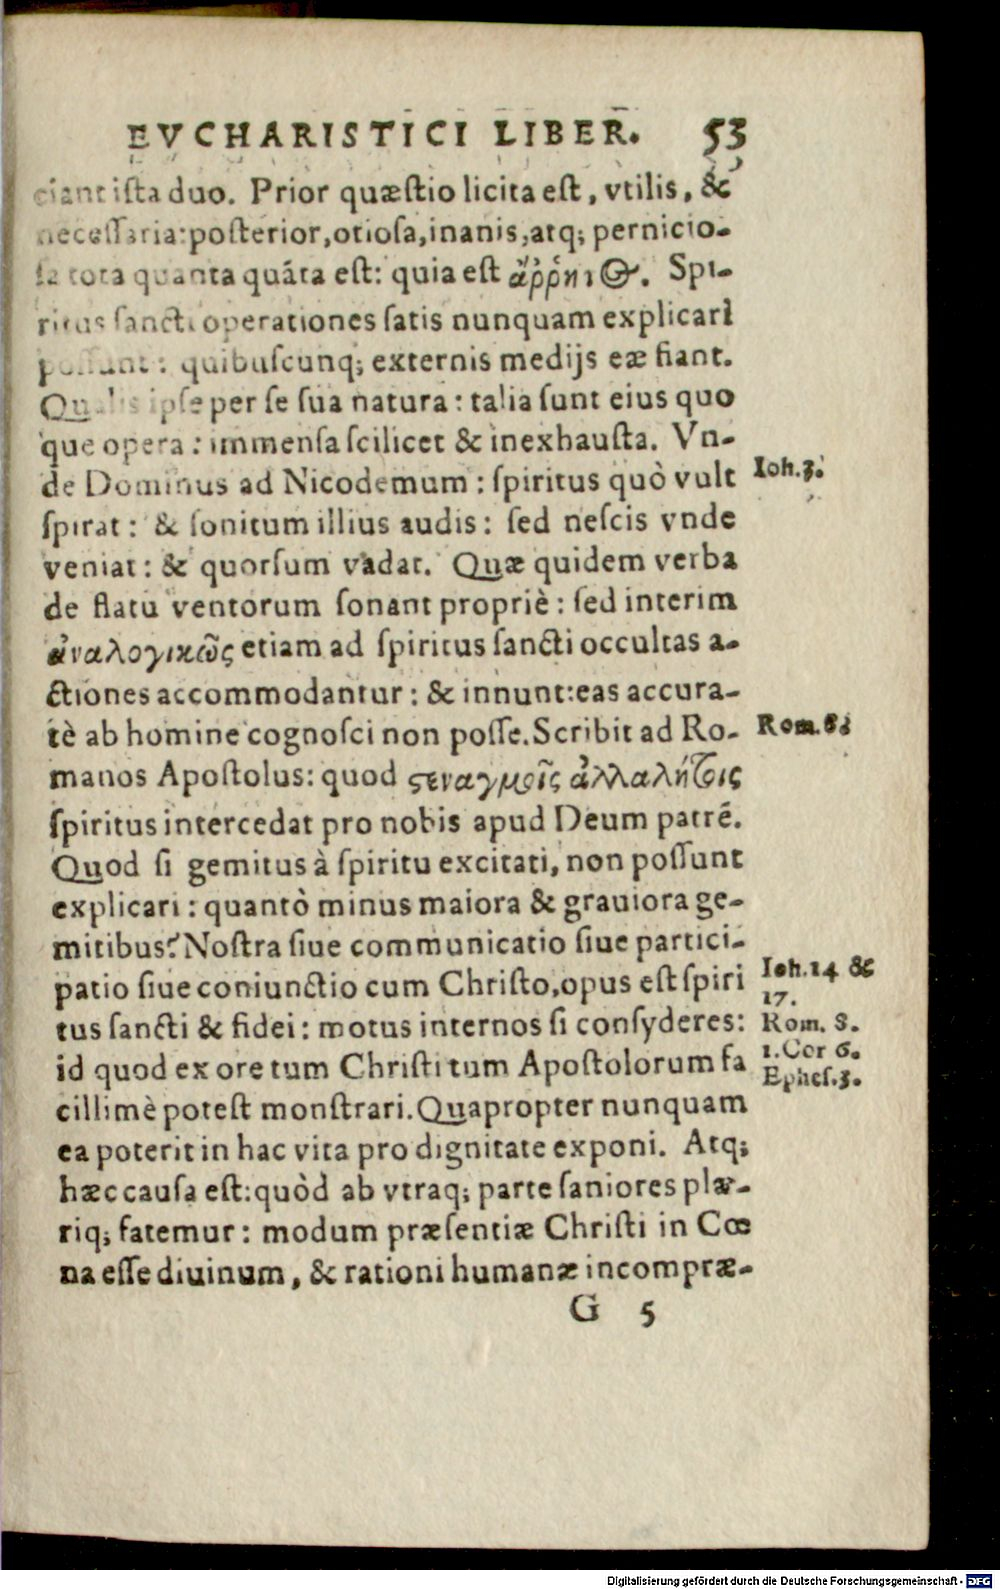 EVCHARISTICI LIBER. 53
ciant ista duo. Prior quæstio licita est, vtilis, &
necessaria: posterior, otiosa, inanis, atq; pernicio-
sa tota quanta quāta est: quia est ἄῤῥητος. Spi-
ritus sancti operationes satis nunquam explicari
possunt: quibuscunq; externis medijs eæ fiant.
Qualis ipse per se sua natura: talia sunt eius quo
que opera: immensa scilicet & inexhausta. Vn-
de Dominus ad Nicodemum: spiritus quò vult
Ioh.3.
spirat: & sonitum illius audis: sed nescis vnde
veniat: & quorsum vadat. Quæ quidem verba
de flatu ventorum sonant propriè: sed interim
ἀναλογικῶς etiam ad spiritus sancti occultas a-
ctiones accommodantur: & innunt: eas accura-
tè ab homine cognosci non posse. Scribit ad Ro-
Rom.8.
manos Apostolus: quod ϛεναγμοῖς ἀλλαλήτοις
spiritus intercedat pro nobis apud Deum patrē.
Quod si gemitus à spiritu excitati, non possunt
explicari: quantò minus maiora & grauiora ge-
mitibus? Nostra siue communicatio siue partici-
patio siue coniunctio cum Christo, opus est spiri
Ioh.14 &
17.
tus sancti & fidei: motus internos si consyderes:
Rom. 8.
id quod ex ore tum Christi tum Apostolorum fa
1.Cor 6.
Ephes.3.
cillimè potest monstrari. Quapropter nunquam
ea poterit in hac vita pro dignitate exponi. Atq;
hæc causa est: quòd ab vtraq; parte saniores plæ-
riq; fatemur: modum præsentiæ Christi in Cœ
na esse diuinum, & rationi humanæ incompræ-
G 5
Digitalisierung gefördert durch die Deutsche Forschungsgemeinschaft - DFG